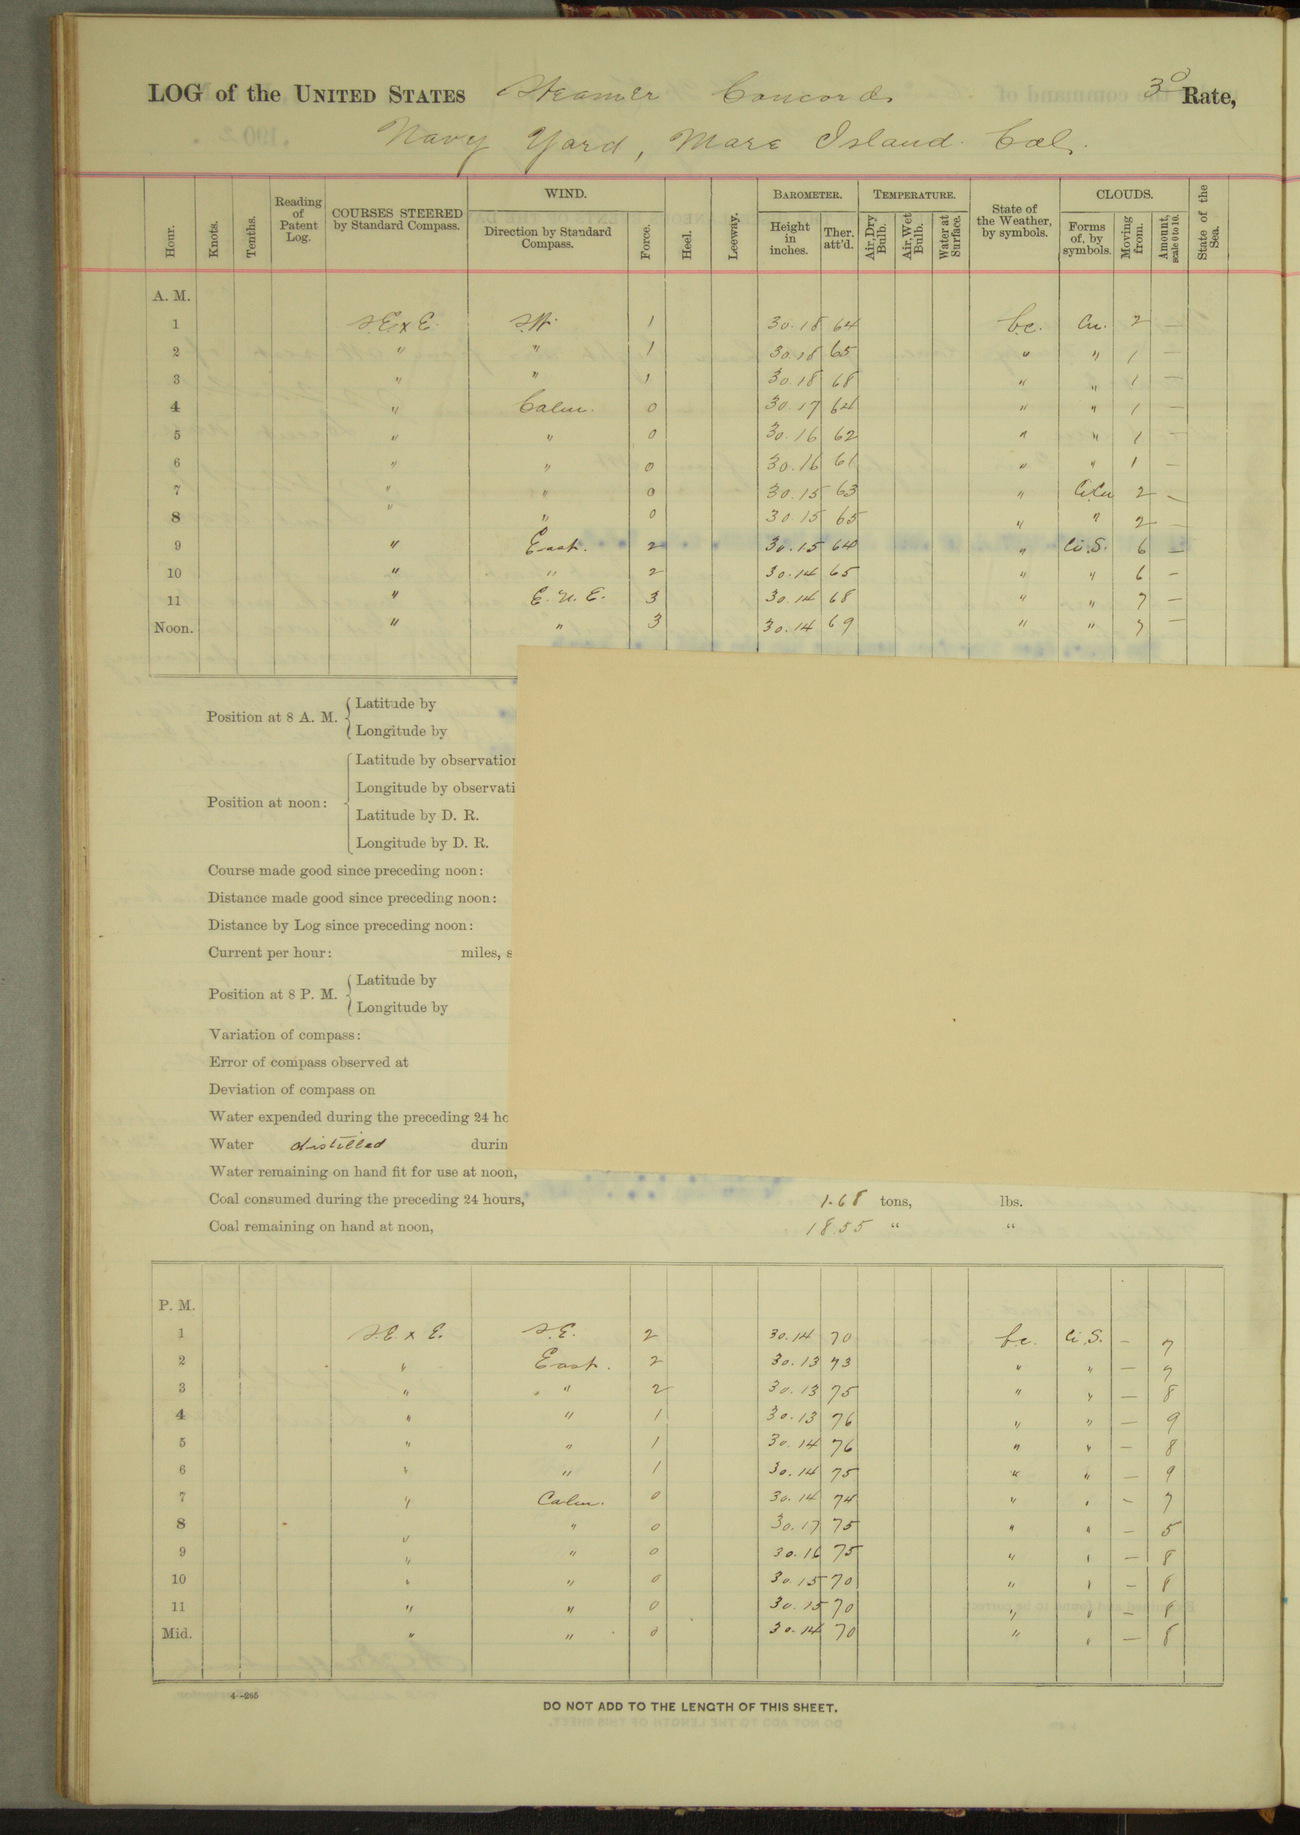 LOG of the UNITED STATES Steamer Concord, 3d Rate,
Navy Yard, Mare Island. Cal.
Hour. Knots. Tenths. Reading of Patent Log. COURSES STEERED by Standard Compass. WIND. Direction by Standard Compass. Force. Heel. Leeway. BAROMETER. Height in inches. Ther. att'd. TEMPERATURE. Air, Dry Bulb. Air, Wet Bulb. Water at Surface. State of the Weather, by symbols. CLOUDS. Forms of, by symbols. Moving from. Amount, scale 0 to 10. State of the Sea.
A. M.
1 S.E. x E. S.W. 1 30.18 64 b.c. Cu. 2 —
2 " " 1 30.18 65 " " 1 —
3 " " 1 30.18 68 " " 1 —
4 " Calm. 0 30.17 64 " " 1 —
5 " " 0 30.16 62 " " 1 —
6 " " 0 30.16 61 " " 1 —
7 " " 0 30.15 63 " Ci.Cu 2 —
8 " " 0 30.15 65 " " 2 —
9 " East. 2 30.15 64 " Ci.S. 6 —
10 " " 2 30.14 65 " " 6 —
11 " E.N.E. 3 30.14 68 " " 7 —
Noon. " " 3 30.14 69 " " 7 —
Position at 8 A. M. Latitude by
Longitude by
Position at noon: Latitude by observation
Longitude by observati
Latitude by D. R.
Longitude by D. R.
Course made good since preceding noon:
Distance made good since preceding noon:
Distance by Log since preceding noon:
Current per hour: miles, s
Position at 8 P. M. Latitude by
Longitude by
Variation of compass:
Error of compass observed at
Deviation of compass on
Water expended during the preceding 24 ho
Water distilled durin
Water remaining on hand fit for use at noon,
Coal consumed during the preceding 24 hours, 1.68 tons, lbs.
Coal remaining on hand at noon, 18.55 " "
P. M.
1 S.E. x E. S.E. 2 30.14 70 b.c. Ci.S. — 7
2 " East. 2 30.13 73 " " — 7
3 " " 2 30.13 75 " " — 8
4 " " 1 30.13 76 " " — 9
5 " " 1 30.14 76 " " — 8
6 " " 1 30.14 75 " " — 9
7 " Calm. 0 30.14 74 " " — 7
8 " " 0 30.17 75 " " — 5
9 " " 0 30.16 75 " " — 8
10 " " 0 30.15 70 " " — 8
11 " " 0 30.15 70 " " — 8
Mid. " " 0 30.14 70 " " — 8
4—265
DO NOT ADD TO THE LENGTH OF THIS SHEET.